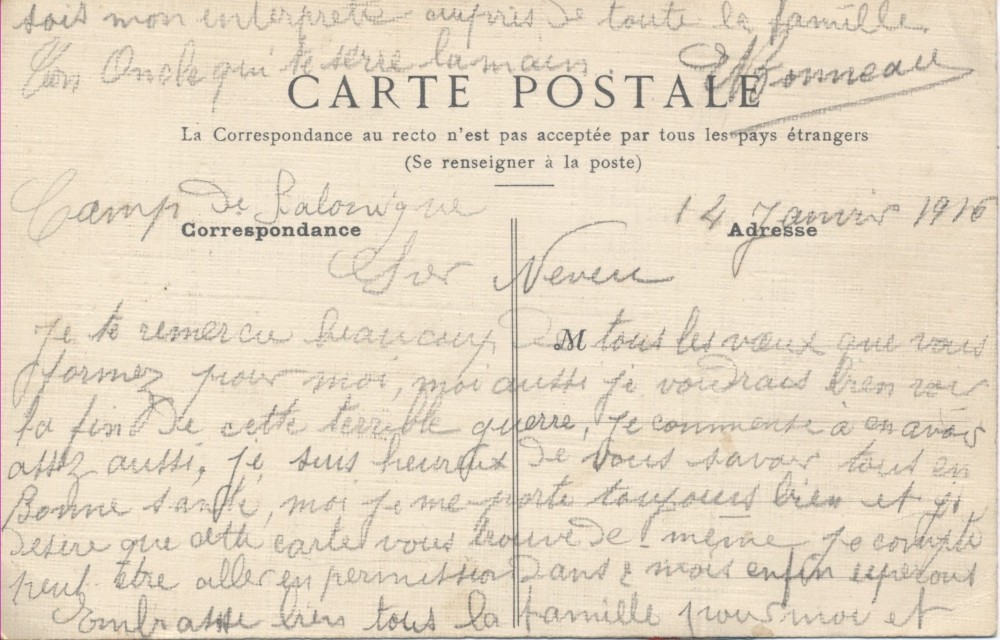 sois mon interprette aupres de toute la famille.
Ton Oncle qui te serre la main. Monneau
CARTE POSTALE
La Correspondance au recto n'est pas acceptée par tous les pays étrangers
(Se renseigner à la poste)
Camp de Salonique 14 Janvier 1916
Correspondance Adresse
Cher Neveu
je te remercie beaucoup de M tous les vœux que vous
formez pour moi, moi aussi je voudrais bien voir
la fin de cette terrible guerre, je commense à en avoir
assez aussi, je suis heureux de vous savoir tous en
Bonne santé, moi je me porte toujours bien et je
desire que cette carte vous trouve de même je compte
peut être aller en permission dans 2 mois enfin esperons
Embrasse bien tous la famille pour moi et